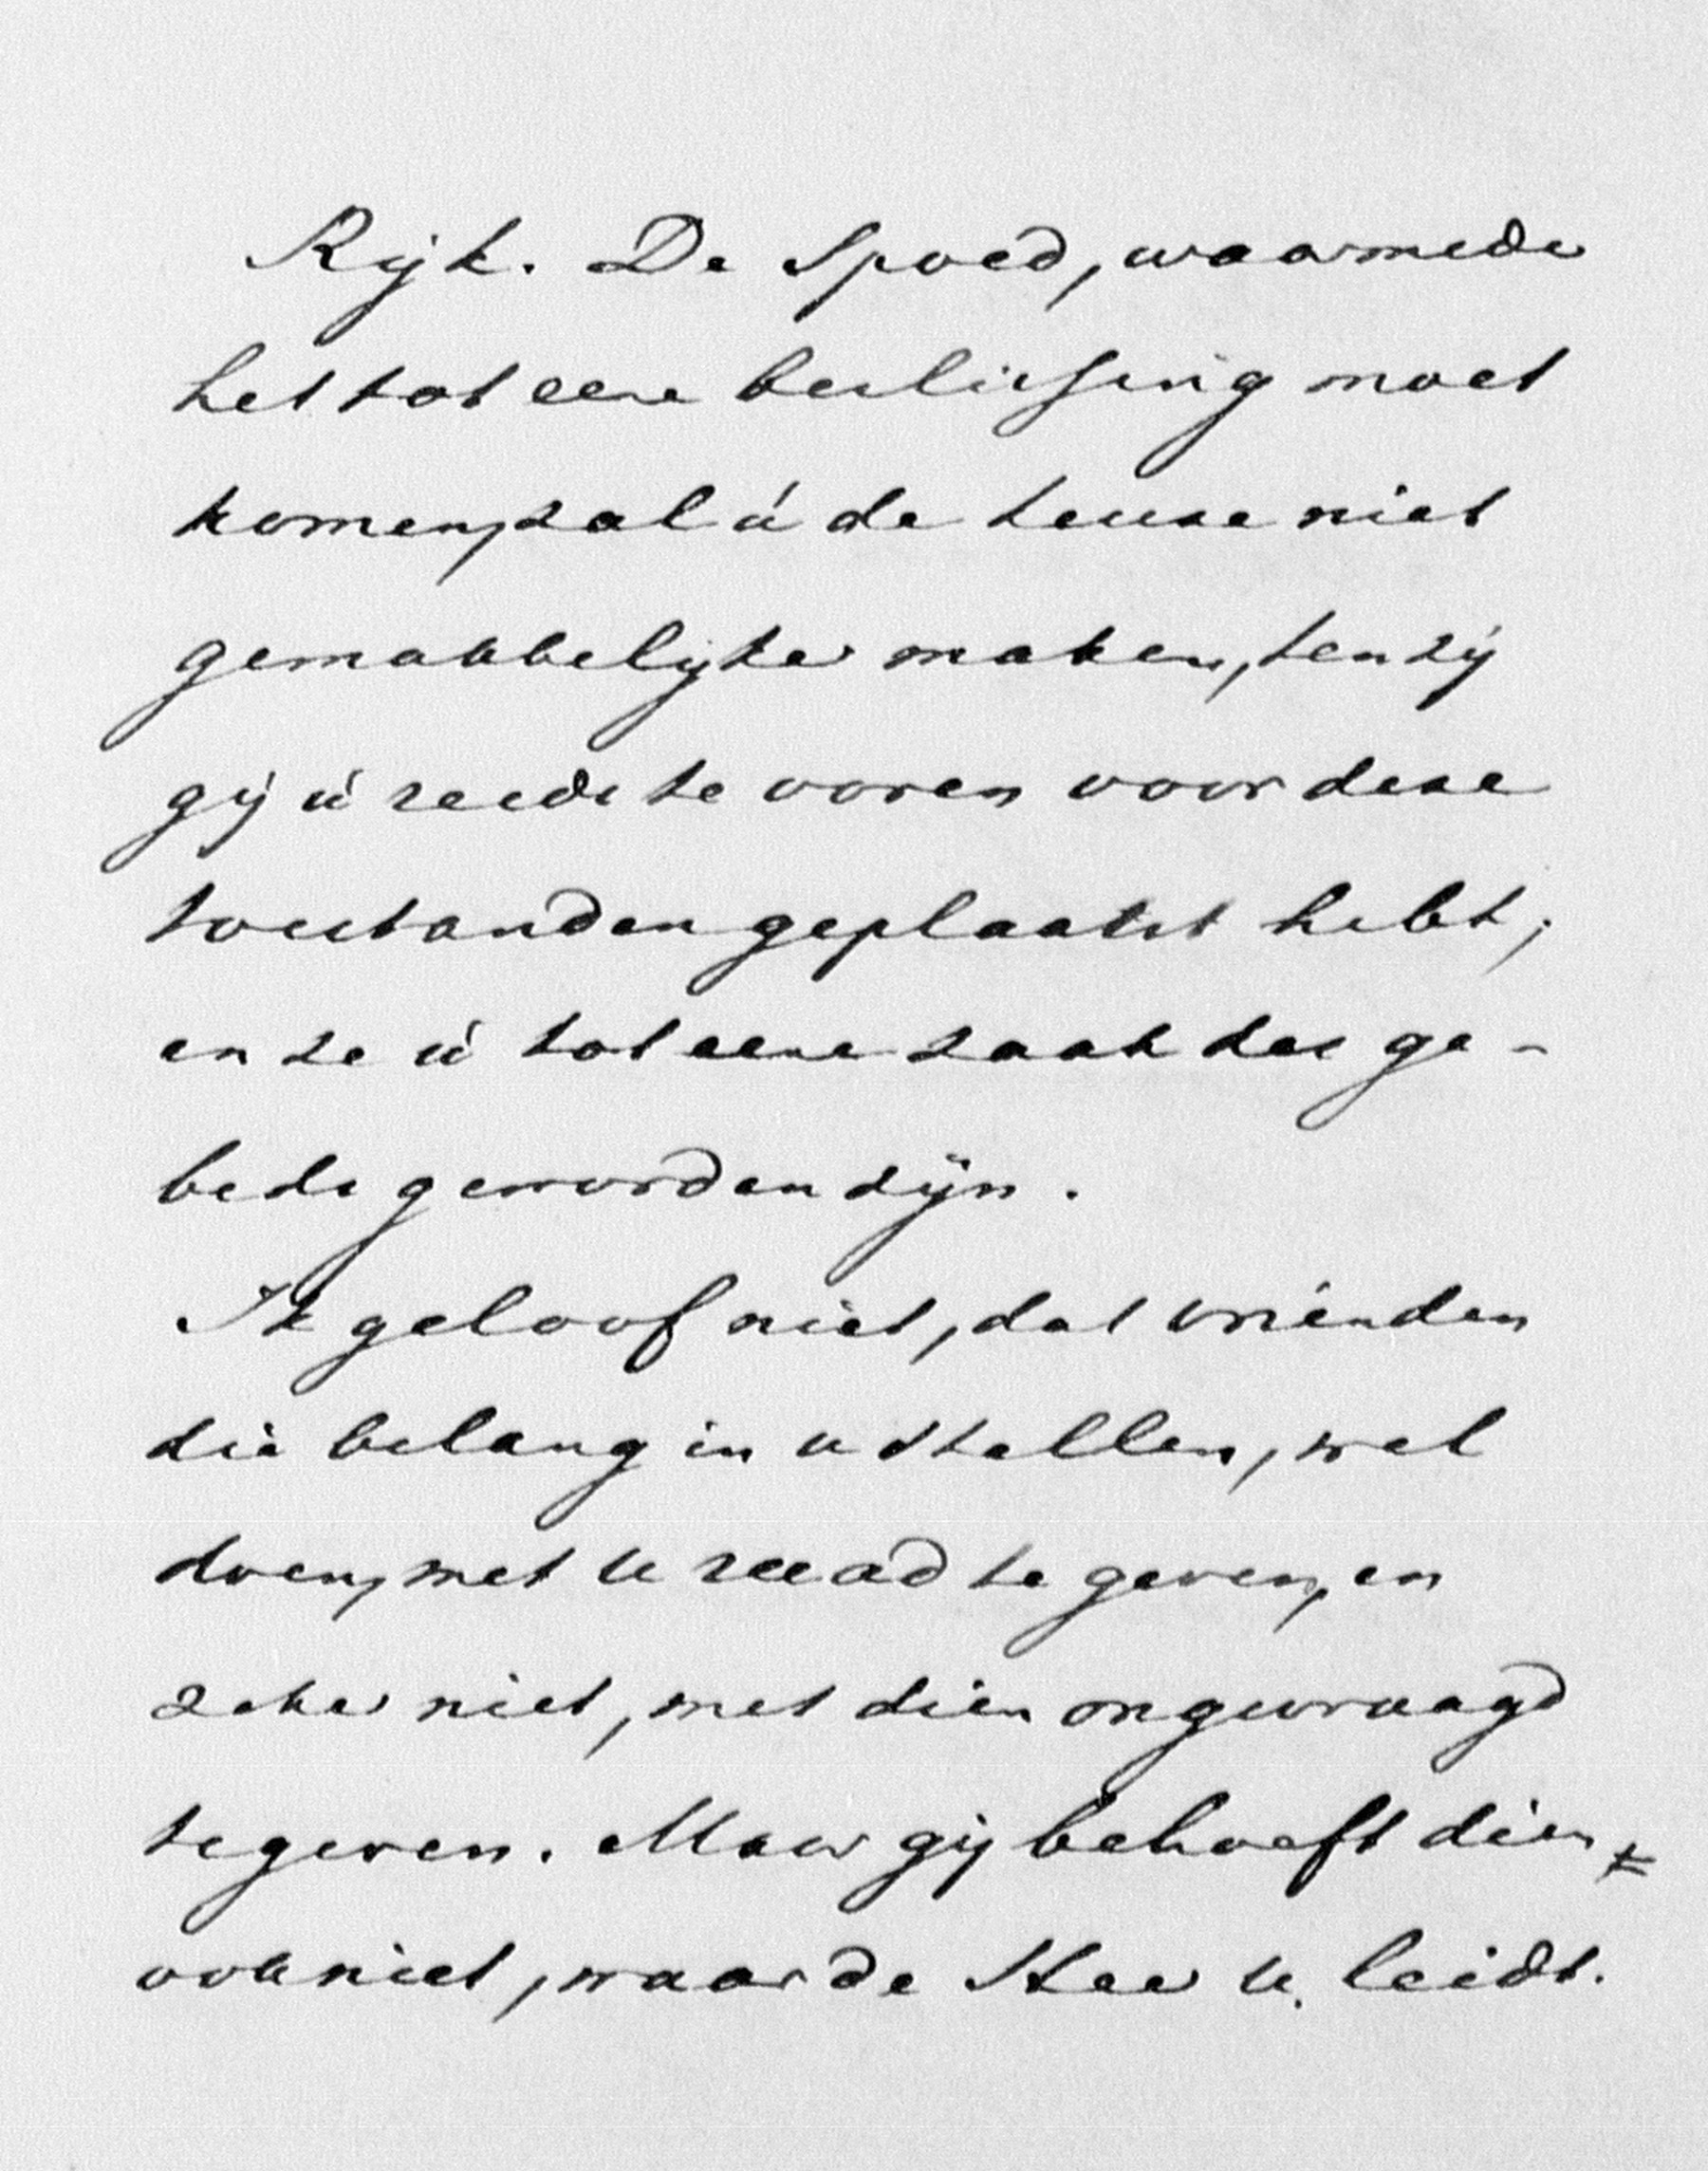 Rijk. De Spoed, waarmede
het tot eene beslissing moet
komen, zal ú de keuze niet
gemakkelijker maken, tenzij
gij ú reeds te voren voor deze
toestanden geplaatst hebt;
en ze ú tot eene zaak des ge-
beds geworden zijn.
Ik geloof niet, dat vrienden
die belang in u stellen, wel
doen, met u raad te geven, en
zeker niet, met dien ongevraagd
te geven. Maar gij behoeft dien
ook niet, waar de Heer u leidt.